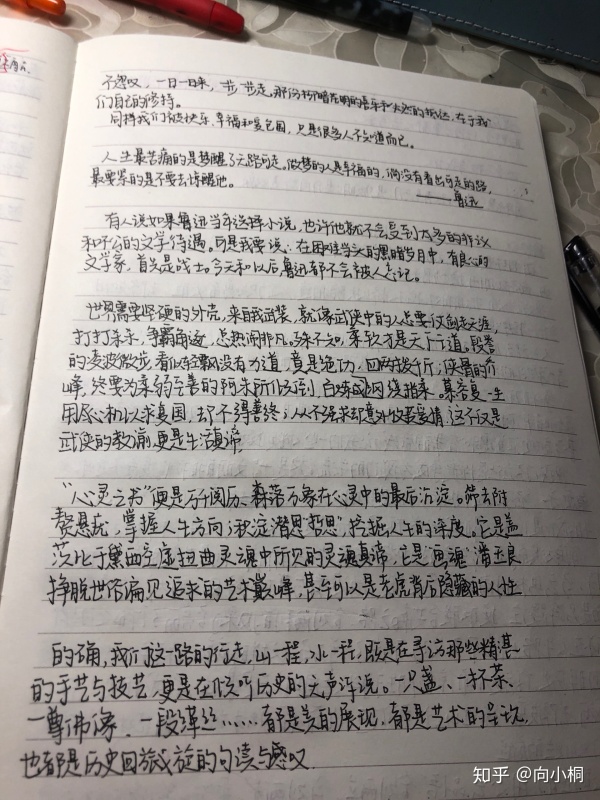 不感叹，一日一日来，一步一步走，那份柳暗花明的喜乐和必然的抵达，在于我
们自己的修持。
同样我们被快乐、幸福和爱包围，只是很多人不知道而已。
人生最苦痛的是梦醒了无路可走。做梦的人是幸福的，倘没有看出可走的路，
最要紧的是不要去惊醒他。
——鲁迅
有人说如果鲁迅当年选择小说，也许他就不会受到太多的非议
和不公的文学待遇。可是我要说：在困难当头的黑暗岁月中，有良心的
文学家，首先是战士。今天和以后鲁迅都不会被人忘记。
世界需要坚硬的外壳，来自我武装，就像武侠中的人总要仗剑走天涯，
打打杀杀，争霸角逐，总热闹非凡。殊不知，柔软才是天下之道。段誉
的凌波微步，看似轻飘没有力道，竟是绝功，四两拨千斤；侠骨的乔
峰，终要为柔弱至善的阿朱所倾倒，百炼成钢绕指柔。慕容复一生
用尽心机以求复国，却不得善终；从不强求却意外收获爱情，这不仅是
武侠的教义，更是生活真谛
“心灵之书”便是万千阅历、森罗万象在心灵中的最后沉淀。筛去附
赘悬疣，掌握人生方向；积淀潜思哲思，挖掘人生的深度。它是盖
茨比于黛西空虚扭曲灵魂中所见的灵魂真谛，它是“画魂”潘玉良
挣脱世俗偏见追求的艺术巅峰，甚至可以是老虎背后隐藏的人性
的确，我们这一路的行走，山一程，水一程，既是在寻访那些精湛
的手艺与技艺，更是在倾听历史的无声诉说。一只盏、一杯茶、
一尊佛像、一段薄丝……都是美的展现，都是艺术的呈说，
也都是历史回旋的句读与感叹
知乎 @向小桐